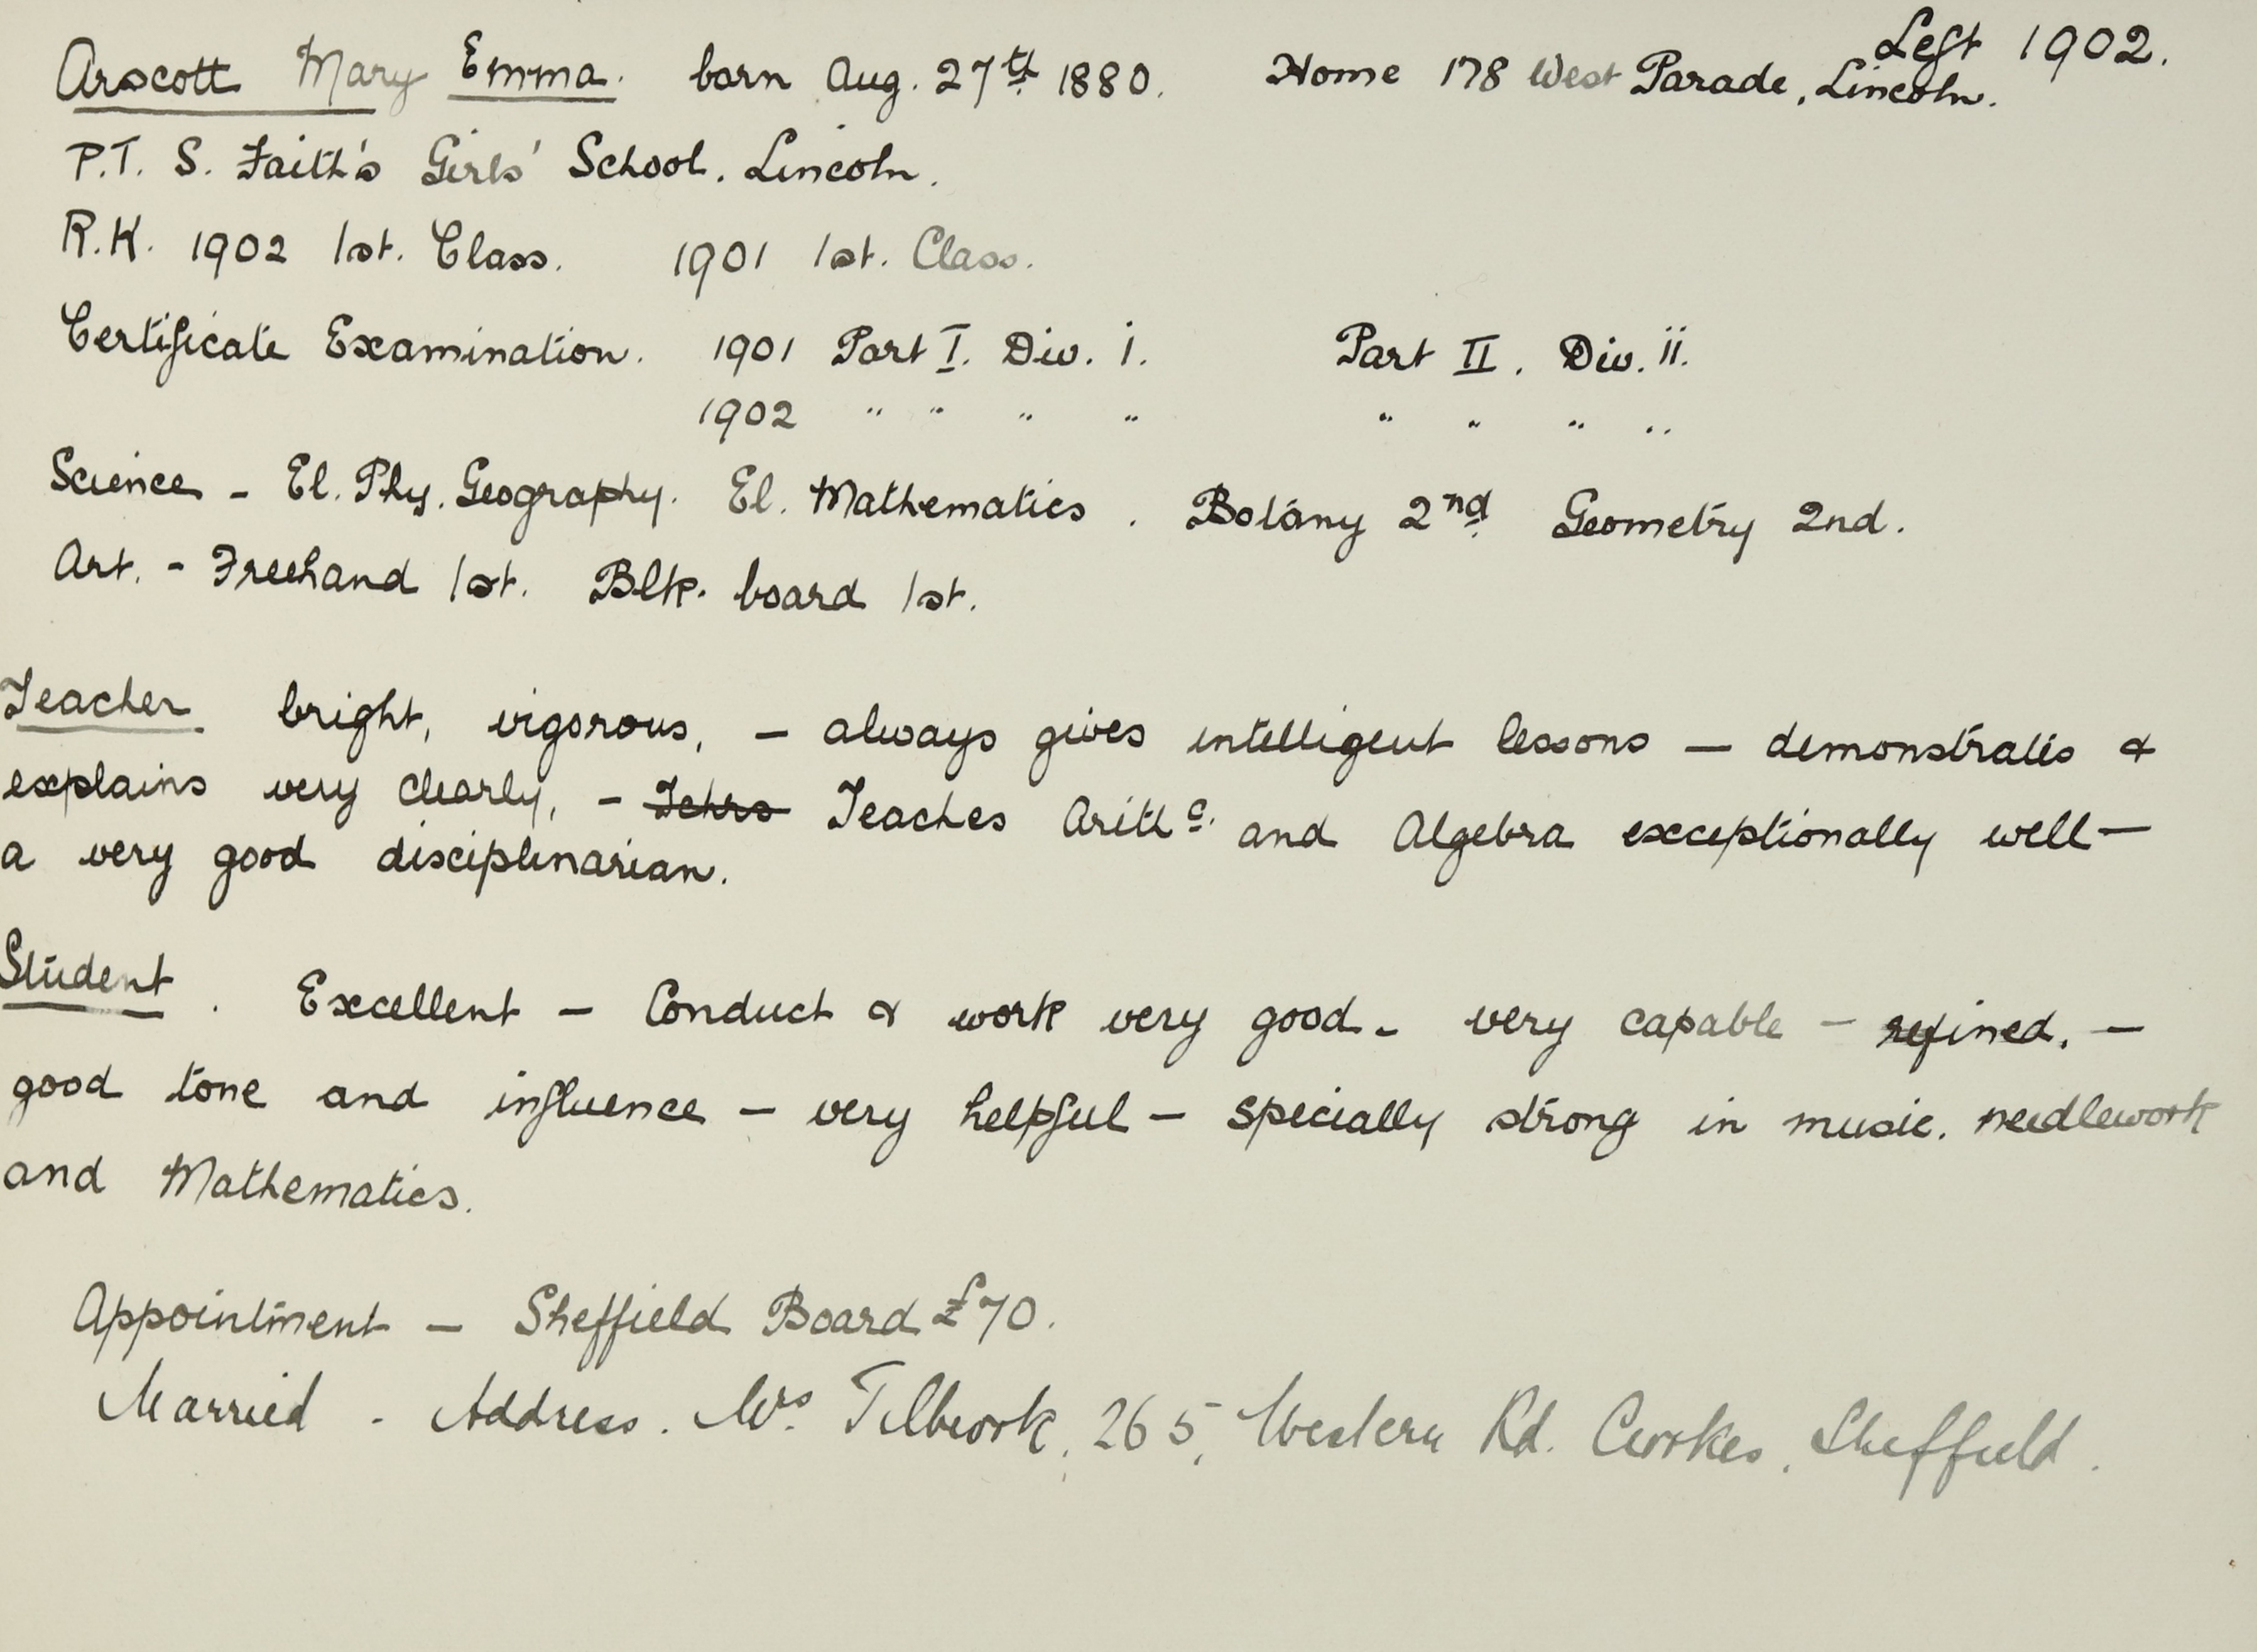 Left 1902.
Arscott Mary Emma. born Aug. 27th 1880. Home 178 West Parade, Lincoln.
P.T. S. Faith's Girls' School. Lincoln.
R.K. 1902 1st. Class. 1901 1st. Class.
Certificate Examination. 1901 Part I. Div. i. Part II. Div. ii.
1902 " " " " " " " "
Science - El. Phy. Geography. El. Mathematics. Botany 2nd Geometry 2nd.
Art. - Freehand 1st. Blk. board 1st.
Teacher bright, vigorous, - always gives intelligent lessons - demonstrates &
explains very clearly, - Tchrs Teaches Arithc. and Algebra exceptionally well -
a very good disciplinarian.
Student. Excellent - Conduct & work very good - very capable - refined, -
good tone and influence - very helpful - specially strong in music. needlework
and Mathematics.
Appointment - Sheffield Board £70.
Married - Address. Mrs. Tilbrook, 265, Western Rd. Crookes, Sheffield.